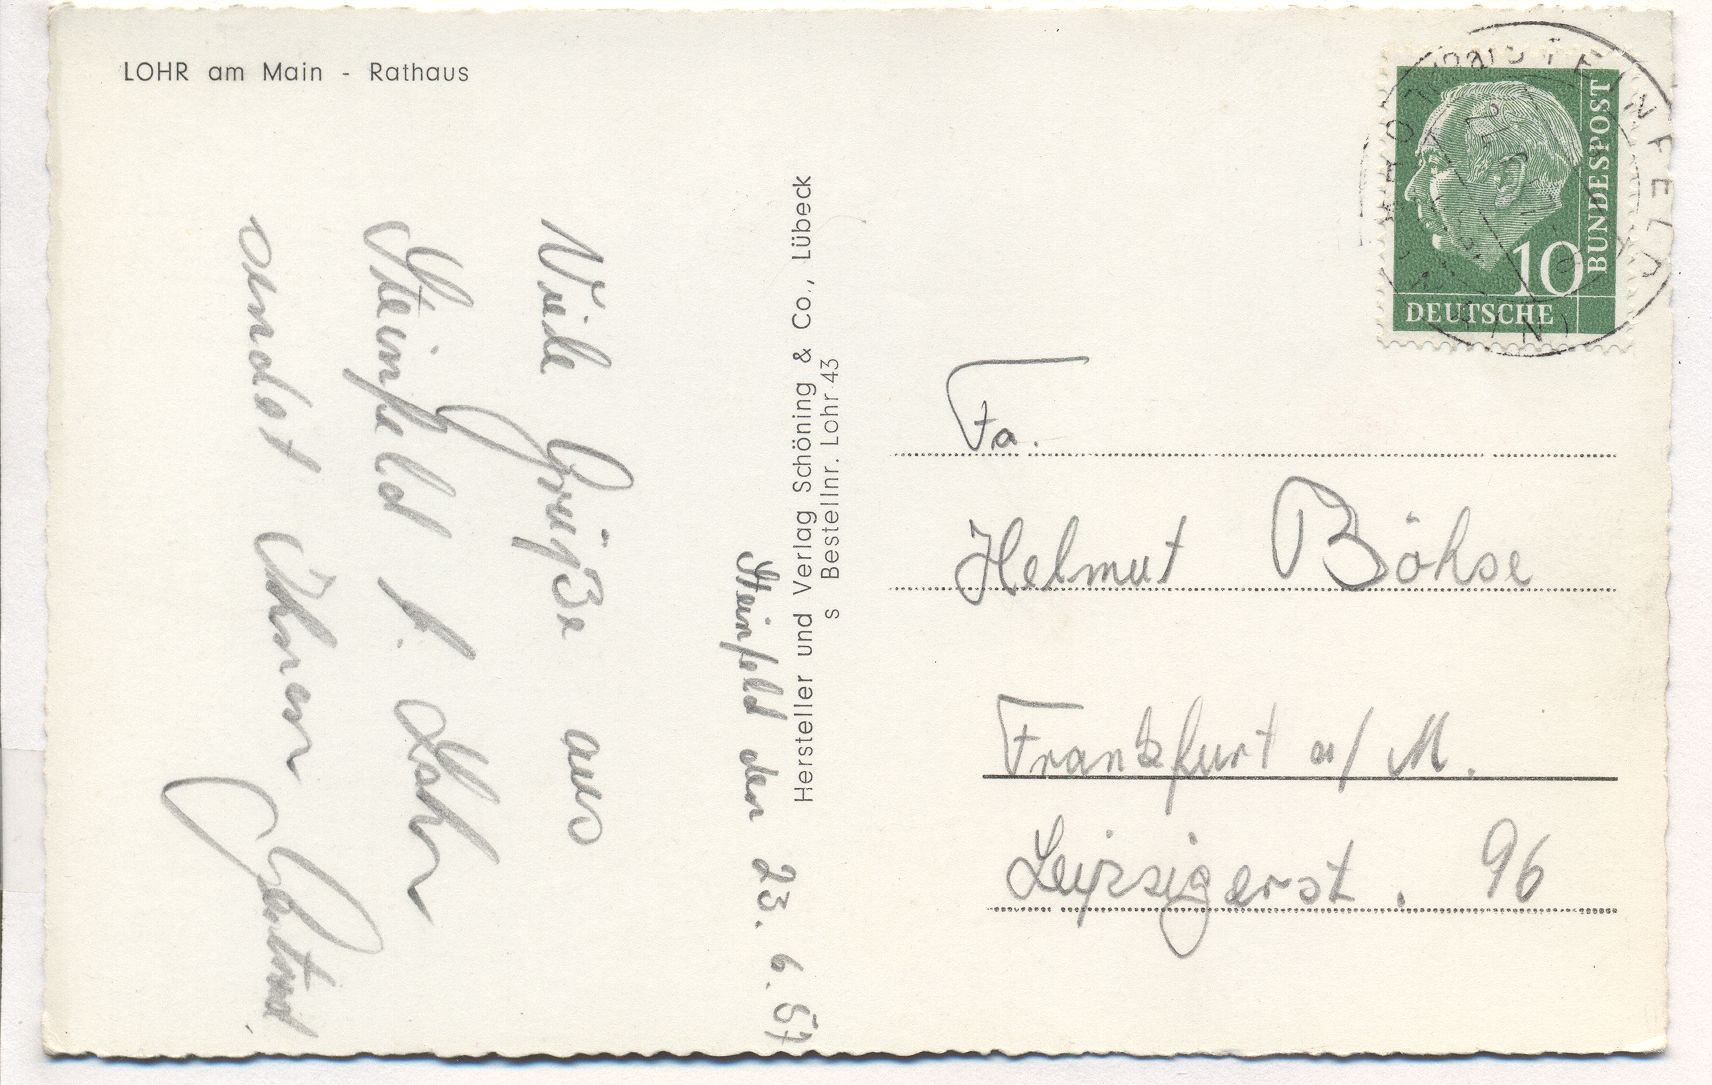 LOHR am Main - Rathaus
STEINFELD
BUNDESPOST
10
DEUTSCHE
Steinfeld den 23. 6. 57
Viele Grüße aus
Steinfeld b. Lohr
sendet Ihnen
Hersteller und Verlag Schöning & Co., Lübeck
s Bestellnr. Lohr 43
Fa.
Helmut Böhse
Frankfurt a/M.
Leipzigerst. 96